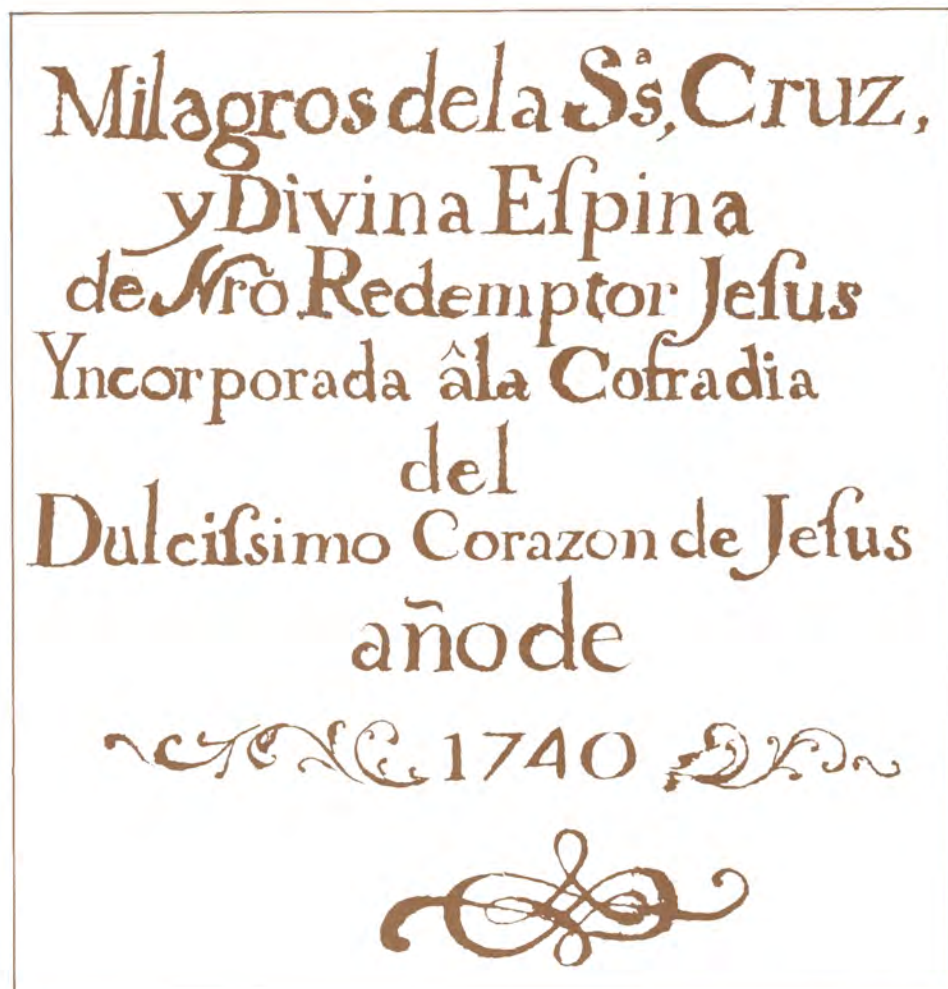 Milagros de la Sˢ,ª Cruz,
y Divina Eſpina
de Nrõ Redemptor Jeſus
Yncorporada âla Cofradia
del
Dulciſsimo Corazon de Jeſus
año de
1740